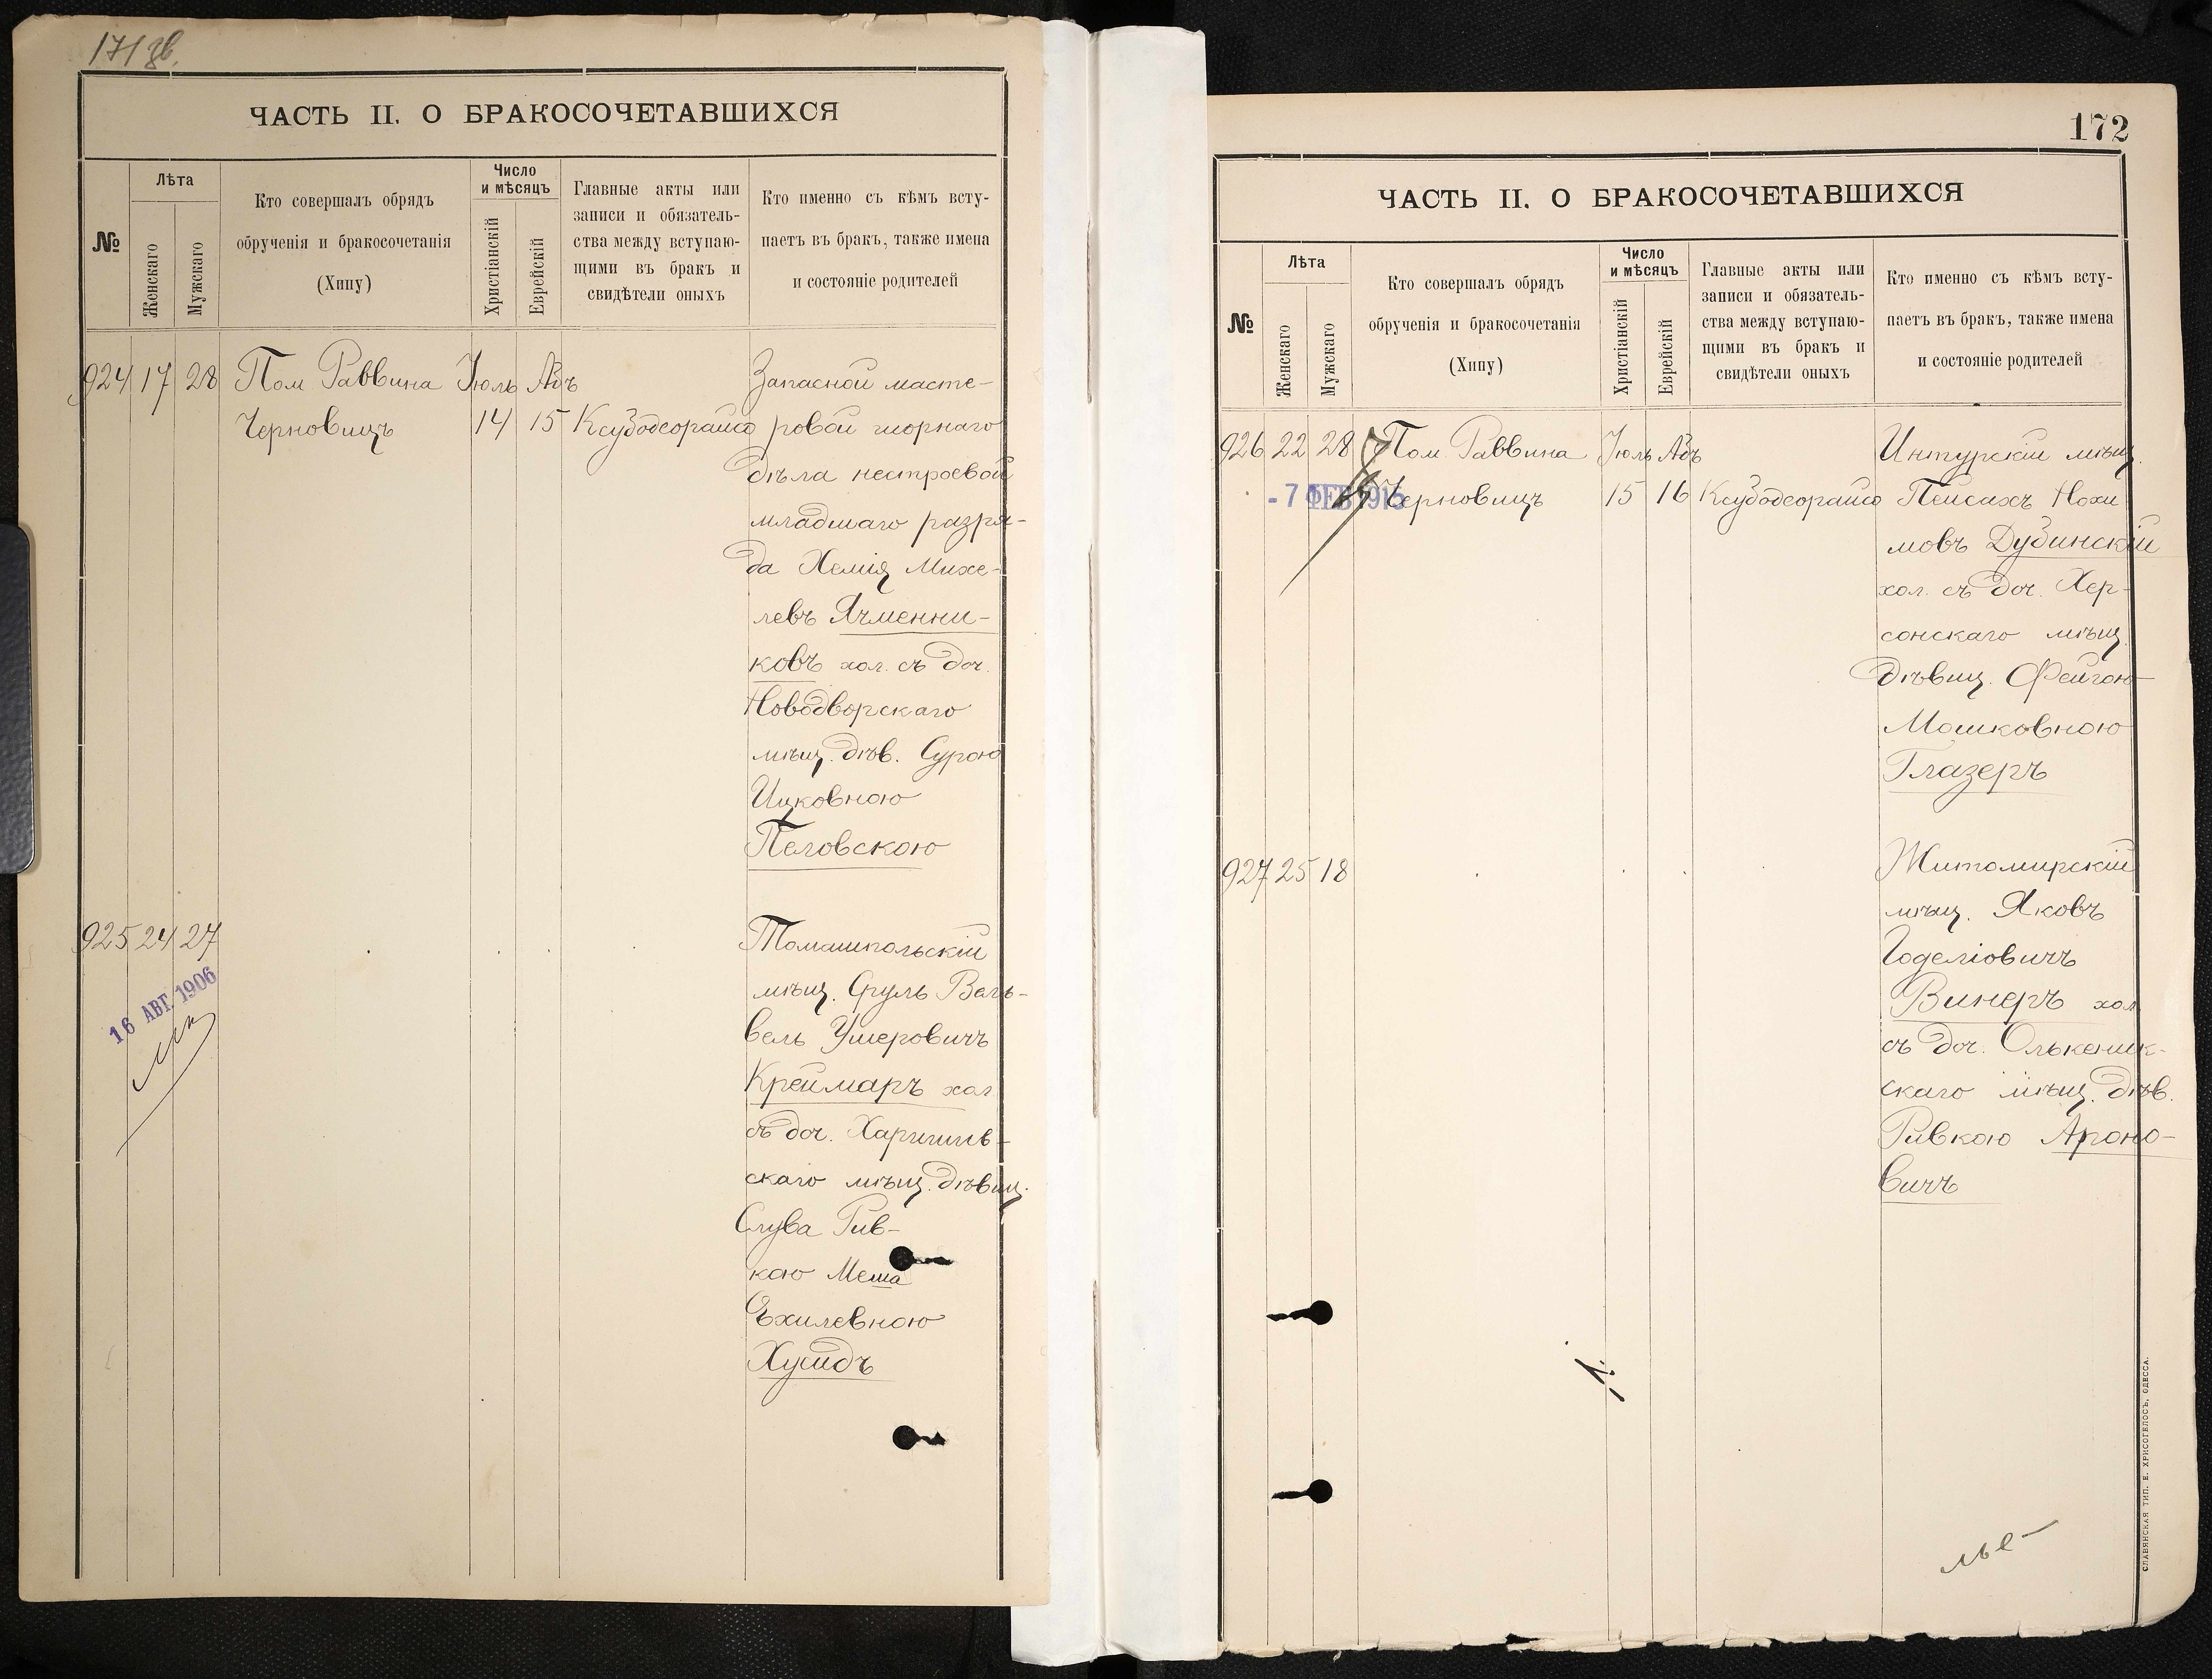 171 об.
ЧАСТЬ II. О БРАКОСОЧЕТАВШИХСЯ
№
Лѣта
Женскаго
Мужскаго
Кто совершалъ обрядъ
обрученія и бракосочетанія
(Хипу)
Число
и мѣсяцъ
Христіанскій
Еврейскій
Главные акты или
записи и обязатель-
ства между вступаю-
щими въ бракъ и
свидѣтели оныхъ
Кто именно съ кѣмъ всту-
паетъ въ бракъ, также имена
и состояніе родителей
924 17 28 Пом. Раввина Іюль Абъ
Черновицъ 14 15 Ксубодеорайсо
Запасной масте-
ровой шорнаго
дѣла нестроевой
младшаго разря-
да Хемія Михе-
левъ Ячменни-
ковъ хол. съ доч.
Новодворскаго
мѣщ. дѣв. Сурою
Ицковною
Пеловскою
925 24 27
16 АВГ. 1906
Томашпольскій
мѣщ. Сруль Вель-
вель Умеровичъ
Креймаръ хол
съ доч.
скаго мѣщ. дѣвиц.
Слува Рив-
кою Меша
Ѣхилевною
Хусидъ
172
ЧАСТЬ II. О БРАКОСОЧЕТАВШИХСЯ
№
Лѣта
Женскаго
Мужскаго
Кто совершалъ обрядъ
обрученія и бракосочетанія
(Хипу)
Число
и мѣсяцъ
Христіанскій
Еврейскій
Главные акты или
записи и обязатель-
ства между вступаю-
щими въ бракъ и
свидѣтели оныхъ
Кто именно съ кѣмъ всту-
паетъ въ бракъ, также имена
и состояніе родителей
926 22 28 Пом. Раввина Іюль Абъ
Черновицъ 15 16 Ксубодеорайсо
- 7 ФЕВ 1915
Интурскій мѣщ.
Пейсахъ Нохи
мовъ Дубинскій
хол. съ доч. Хер-
сонскаго мѣщ.
дѣвиц. Фейгою
Мошковною
Глазеръ
927 25 18
Житомирскій
мѣщ. Яковъ
Годеліовичъ
Винеръ хол
съ доч. Олькеник-
скаго мѣщ. дѣв.
Ривкою Ароно-
вичъ
СЛАВЯНСКАЯ ТИП. Е. ХРИСОГЕЛОСЪ, ОДЕССА.